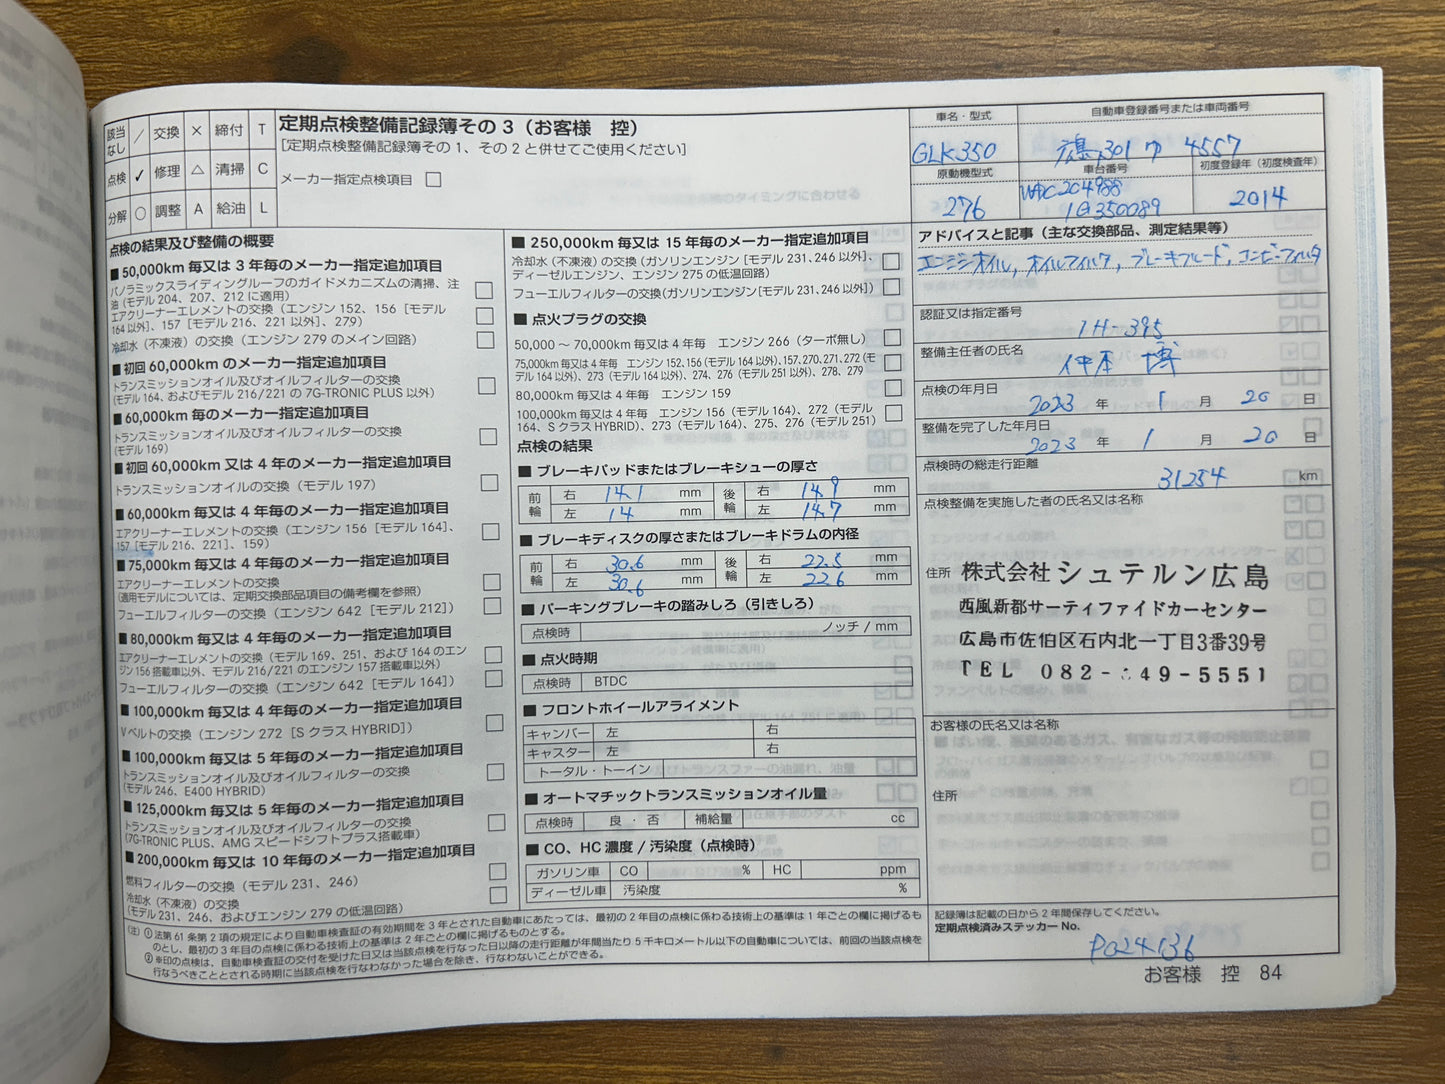 該当なし / 交換 × 締付 T
点検 ✓ 修理 △ 清掃 C
分解 ○ 調整 A 給油 L
定期点検整備記録簿その3(お客様 控)
[定期点検整備記録簿その1、その2と併せてご使用ください]
メーカー指定点検項目 □
車名・型式
GLK350
自動車登録番号または車両番号
広島 301 ゆ 4557
原動機型式
276
車台番号
WDC204988
1G350089
初度登録年(初度検査年)
2014
点検の結果及び整備の概要
■ 50,000km 毎又は 3 年毎のメーカー指定追加項目
パノラミックスライディングルーフのガイドメカニズムの清掃、注
油(モデル 204、207、212 に適用) □
エアクリーナーエレメントの交換(エンジン 152、156[モデル
164 以外]、157[モデル 216、221 以外]、279) □
冷却水(不凍液)の交換(エンジン 279 のメイン回路) □
■ 初回 60,000km のメーカー指定追加項目
トランスミッションオイル及びオイルフィルターの交換
(モデル 164、およびモデル 216/221 の 7G-TRONIC PLUS 以外) □
■ 60,000km 毎のメーカー指定追加項目
トランスミッションオイル及びオイルフィルターの交換
(モデル 169) □
■ 初回 60,000km 又は 4 年のメーカー指定追加項目
トランスミッションオイルの交換(モデル 197) □
■ 60,000km 又は 4 年毎のメーカー指定追加項目
エアクリーナーエレメントの交換(エンジン 156[モデル 164]、
157[モデル 216、221]、159) □
■ 75,000km 毎又は 4 年毎のメーカー指定追加項目
エアクリーナーエレメントの交換
(適用モデルについては、定期交換部品項目の備考欄を参照) □
フューエルフィルターの交換(エンジン 642[モデル 212]) □
■ 80,000km 毎又は 4 年毎のメーカー指定追加項目
エアクリーナーエレメントの交換(モデル 169、251、および 164 のエン
ジン 156 搭載車以外、モデル 216/221 のエンジン 157 搭載車以外) □
フューエルフィルターの交換(エンジン 642[モデル 164]) □
■ 100,000km 毎又は 4 年毎のメーカー指定追加項目
V ベルトの交換(エンジン 272[S クラス HYBRID]) □
■ 100,000km 毎又は 5 年毎のメーカー指定追加項目
トランスミッションオイル及びオイルフィルターの交換
(モデル 246、E400 HYBRID) □
■ 125,000km 毎又は 5 年毎のメーカー指定追加項目
トランスミッションオイル及びオイルフィルターの交換
(7G-TRONIC PLUS、AMG スピードシフトプラス搭載車) □
■ 200,000km 毎又は 10 年毎のメーカー指定追加項目
燃料フィルターの交換(モデル 231、246) □
冷却水(不凍液)の交換
(モデル 231、246、およびエンジン 279 の低温回路) □
■ 250,000km 毎又は 15 年毎のメーカー指定追加項目
冷却水(不凍液)の交換(ガソリンエンジン[モデル 231、246 以外]、
ディーゼルエンジン、エンジン 275 の低温回路) □
フューエルフィルターの交換(ガソリンエンジン[モデル 231、246 以外]) □
■ 点火プラグの交換
50,000 ~ 70,000km 毎又は 4 年毎 エンジン 266(ターボ無し) □
75,000km 毎又は 4 年毎 エンジン 152、156(モデル 164 以外)、157、270、271、272(モ
デル 164 以外)、273(モデル 164 以外)、274、276(モデル 251 以外)、278、279 □
80,000km 毎又は 4 年毎 エンジン 159 □
100,000km 毎又は 4 年毎 エンジン 156(モデル 164)、272(モデル
164、S クラス HYBRID)、273(モデル 164)、275、276(モデル 251) □
点検の結果
■ ブレーキパッドまたはブレーキシューの厚さ
前輪 右 14.1 mm 後輪 右 14.9 mm
左 14 mm 左 14.7 mm
■ ブレーキディスクの厚さまたはブレーキドラムの内径
前輪 右 30.6 mm 後輪 右 22.5 mm
左 30.6 mm 左 22.6 mm
■ パーキングブレーキの踏みしろ(引きしろ)
点検時 ノッチ / mm
■ 点火時期
点検時 BTDC
■ フロントホイールアライメント
キャンバー 左 右
キャスター 左 右
トータル・トーイン
■ オートマチックトランスミッションオイル量
点検時 良 ・ 否 補給量 cc
■ CO、HC 濃度 / 汚染度(点検時)
ガソリン車 CO % HC ppm
ディーゼル車 汚染度 %
アドバイスと記事(主な交換部品、測定結果等)
エンジンオイル, オイルフィルタ, ブレーキフルード, コンビ-フィルタ
認証又は指定番号
1H-395
整備主任者の氏名
仲本 博
点検の年月日
2023 年 1 月 20 日
整備を完了した年月日
2023 年 1 月 20 日
点検時の総走行距離
31254 km
点検整備を実施した者の氏名又は名称
住所 株式会社シュテルン広島
西風新都サーティファイドカーセンター
広島市佐伯区石内北一丁目3番39号
TEL 082- 49-5551
お客様の氏名又は名称
住所
(注) ① 法第 61 条第 2 項の規定により自動車検査証の有効期間を 3 年とされた自動車にあたっては、最初の 2 年目の点検に係わる技術上の基準は 1 年ごとの欄に掲げるも
のとし、最初の 3 年目の点検に係わる技術上の基準は 2 年ごとの欄に掲げるものとする。
② ※印の点検は、自動車検査証の交付を受けた日又は当該点検を行なった日以降の走行距離が年間当たり 5 千キロメートル以下の自動車については、前回の当該点検を
行なうべきこととされる時期に当該点検を行なわなかった場合を除き、行なわないことができる。
記録簿は記載の日から 2 年間保存してください。
定期点検済みステッカー No.
P024136
お客様 控 84